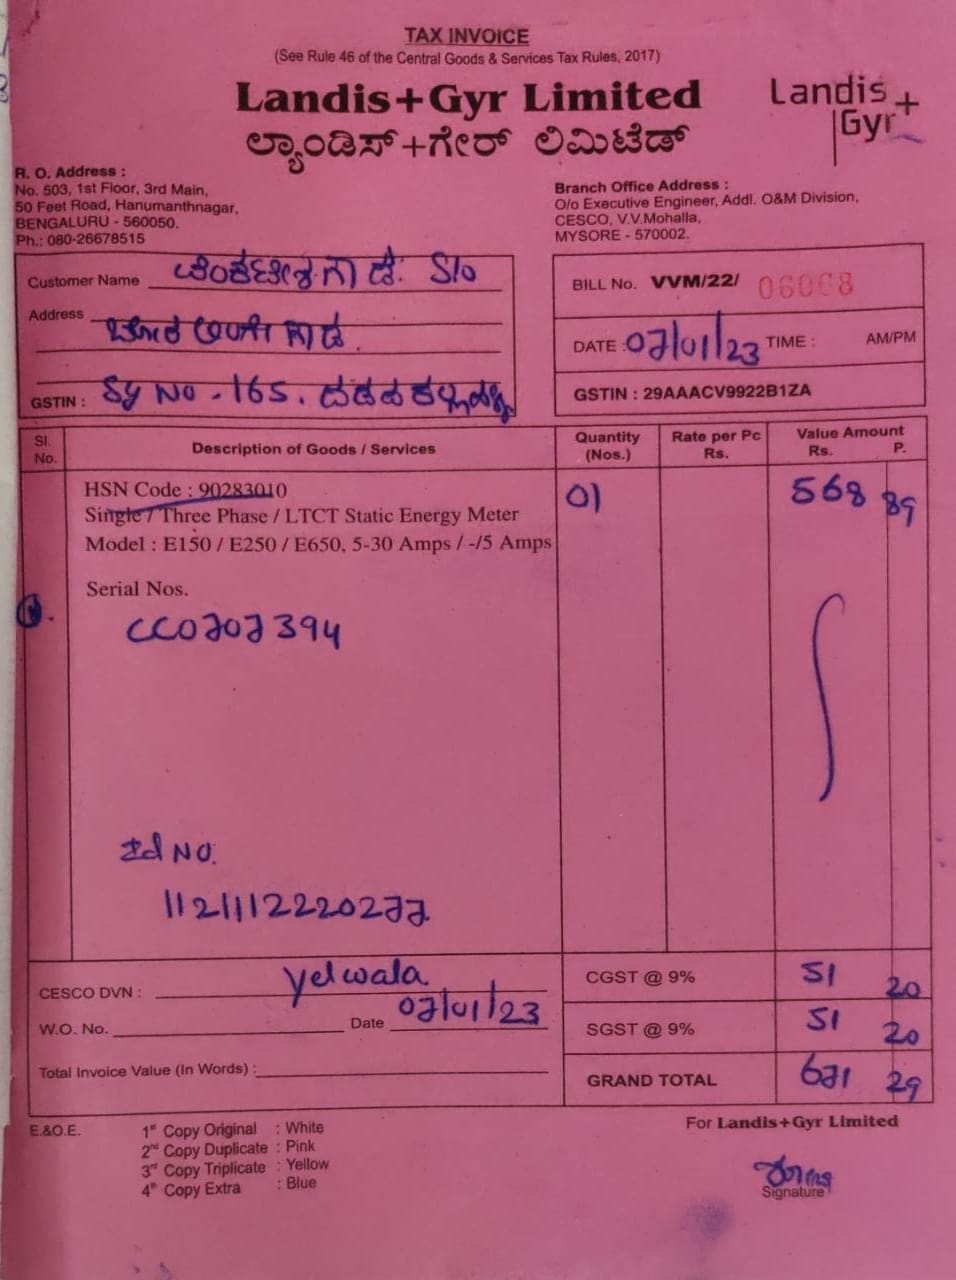 TAX INVOICE
(See Rule 46 of the Central Goods & Services Tax Rules, 2017)
Landis+Gyr Limited
ಲ್ಯಾಂಡಿಸ್+ಗೇರ್ ಲಿಮಿಟೆಡ್
Landis
Gyr+
R. O. Address :
No. 503, 1st Floor, 3rd Main,
50 Feet Road, Hanumanthnagar,
BENGALURU - 560050.
Ph.: 080-26678515
Branch Office Address :
O/o Executive Engineer, Addl. O&M Division,
CESCO, V.V.Mohalla,
MYSORE - 570002.
Customer Name S/o
Address
GSTIN : Sy No - 165.
BILL No. VVM/22/
DATE : 07/01/23 TIME : AM/PM
GSTIN : 29AAACV9922B1ZA
Sl. No. Description of Goods / Services Quantity (Nos.) Rate per Pc Rs. Value Amount Rs. P.
HSN Code : 90283010 01 568 89
Single / Three Phase / LTCT Static Energy Meter
Model : E150 / E250 / E650, 5-30 Amps / -/5 Amps
Serial Nos.
CC0707394
Id No.
1121112220277
CESCO DVN : Yelwala
W.O. No. Date 07/01/23
Total Invoice Value (In Words) :
CGST @ 9% 51 20
SGST @ 9% 51 20
GRAND TOTAL 671 29
E.&O.E.
1st Copy Original : White
2nd Copy Duplicate : Pink
3rd Copy Triplicate : Yellow
4th Copy Extra : Blue
For Landis+Gyr Limited
Signature